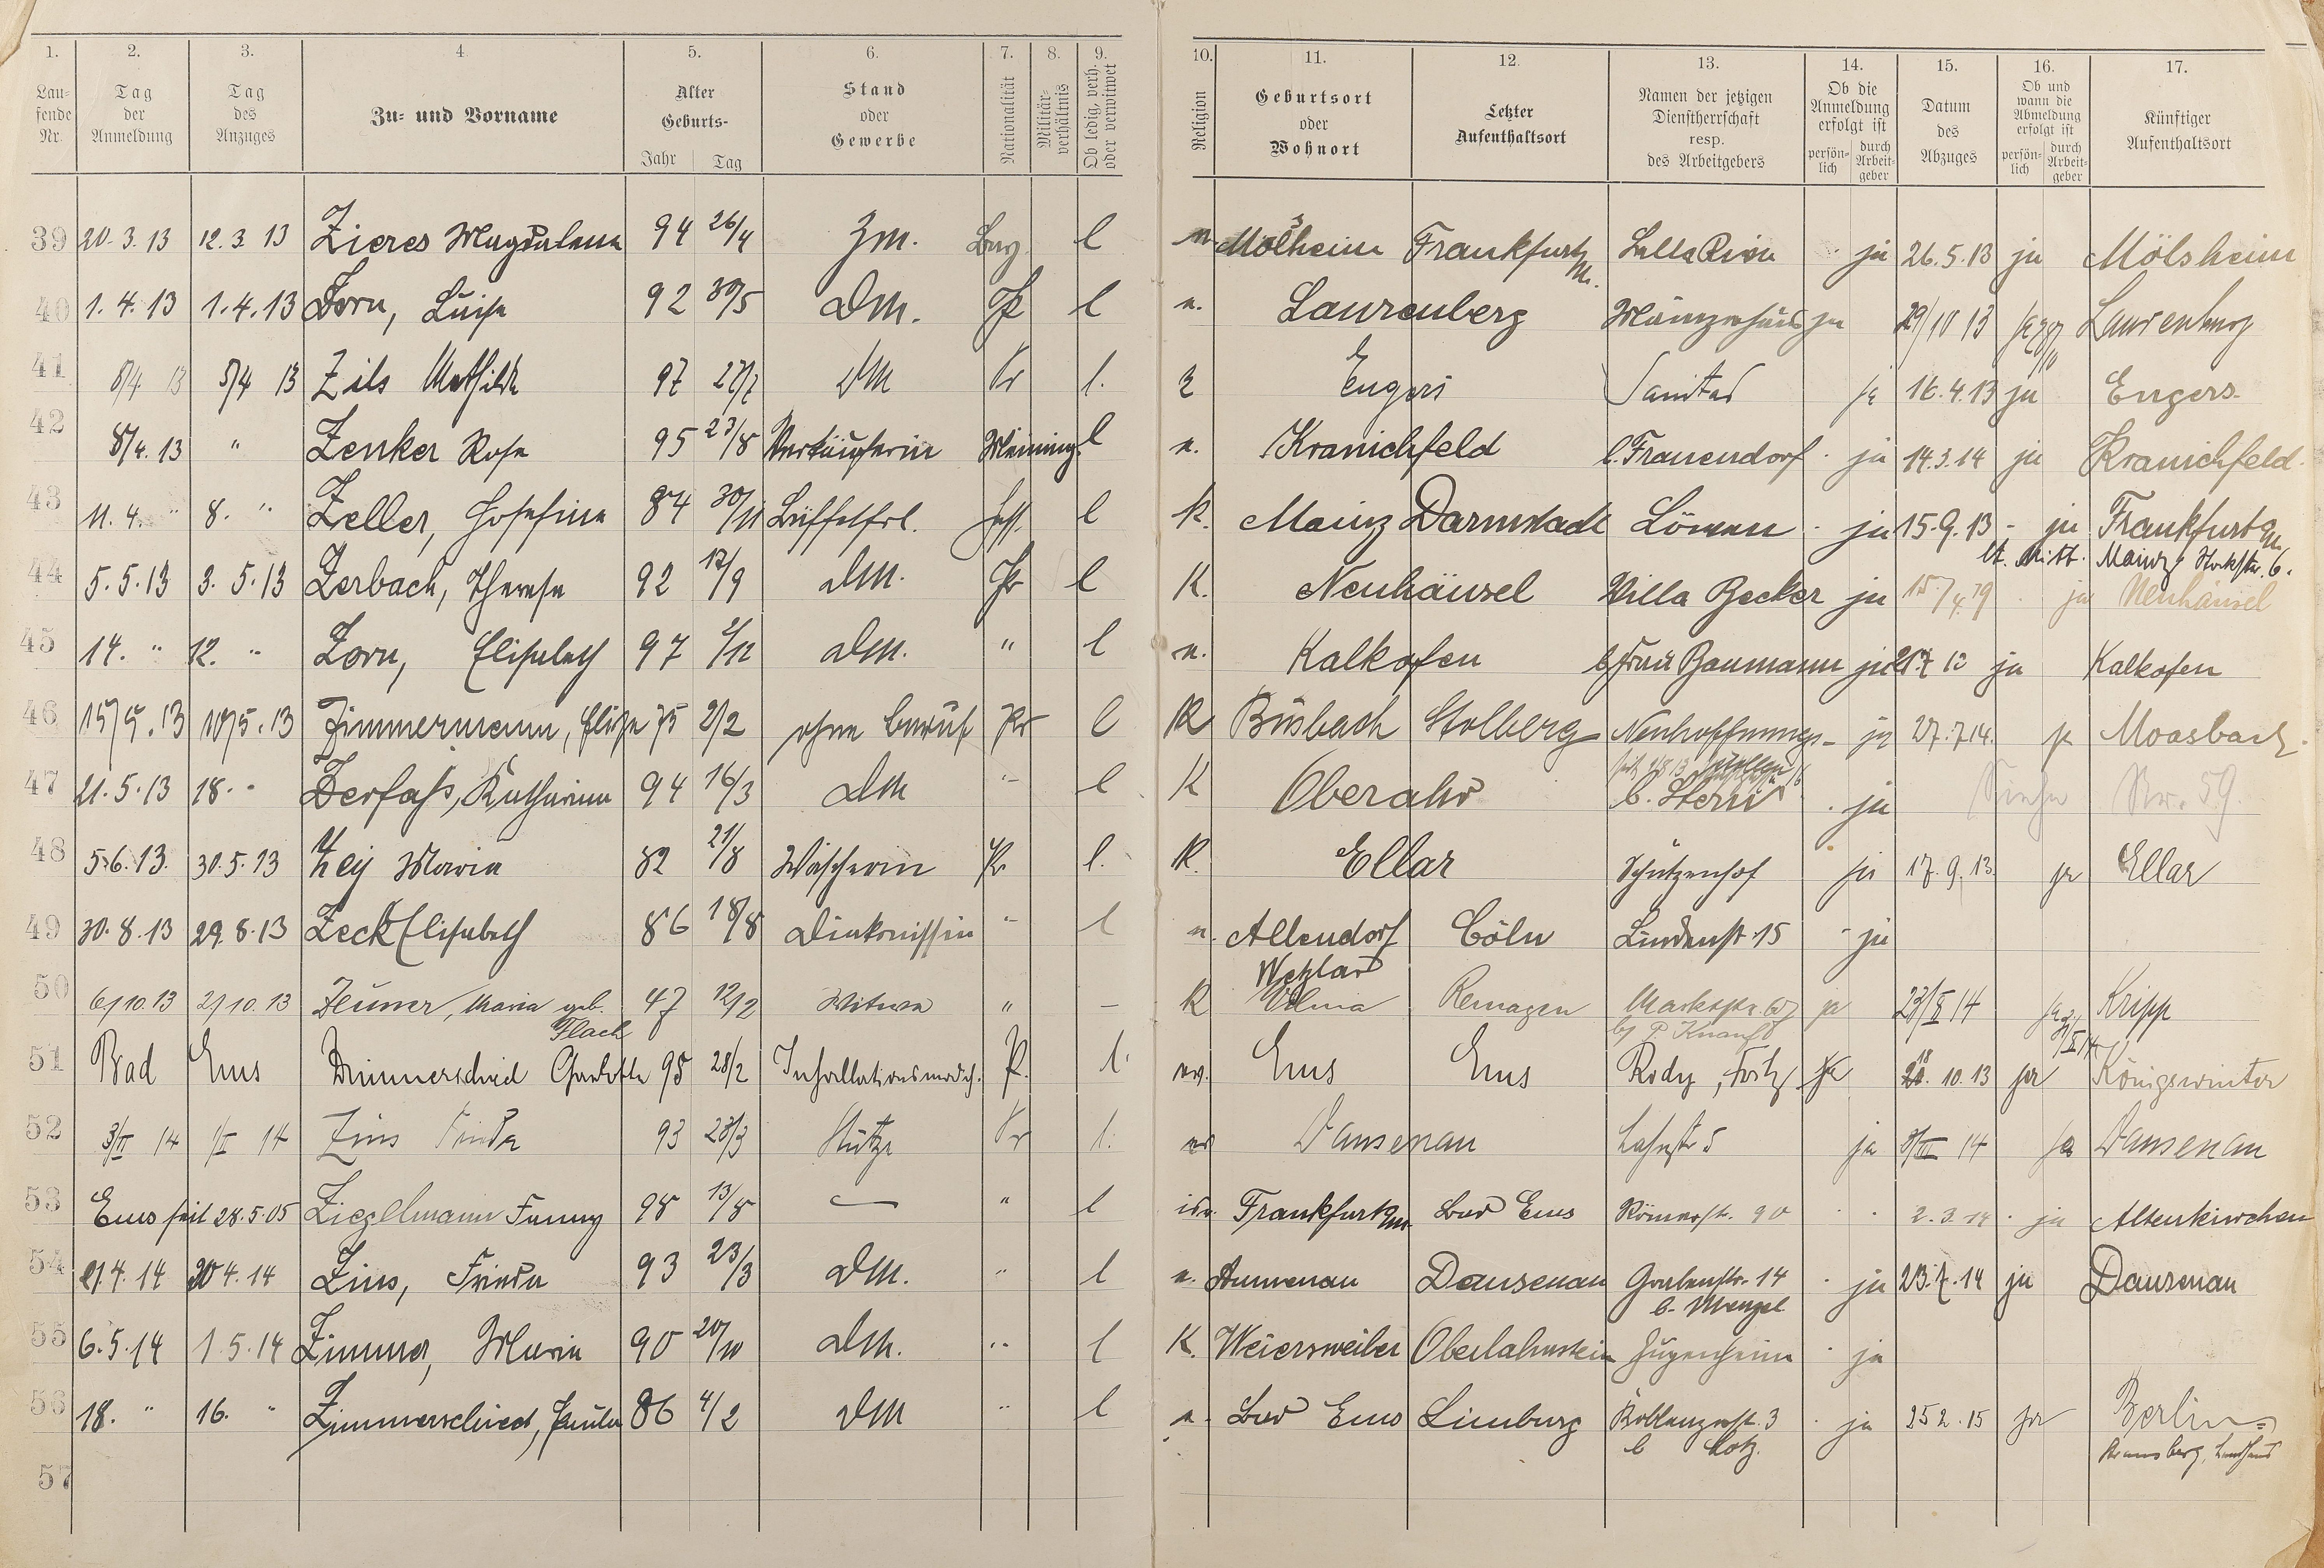 1. 2. 3. 4. 5. 6. 7. 8. 9. 10. 11. 12. 13. 14. 15. 16. 17.
Lau-fende Nr.
Tag der Anmeldung
Tag des Anzuges
Zu- und Vorname
Alter Geburts- Jahr Tag
Stand oder Gewerbe
Nationalität
Militär-verhältnis
Ob ledig, verh. oder verwitwet
Religion
Geburtsort oder Wohnort
Letzter Aufenthaltsort
Namen der jetzigen Dienstherrschaft resp. des Arbeitgebers
Ob die Anmeldung erfolgt ist persön-lich durch Arbeit-geber
Datum des Abzuges
Ob und wann die Abmeldung erfolgt ist persön-lich durch Arbeit-geber
Künftiger Aufenthaltsort
39 20.3.13 12.3.13 Zieres Magdalena 94 26/4 Zm. Bay l Mölsheim Frankfurt M. ja 26.5.13 ja Mölsheim
40 1.4.13 1.4.13 Zorn, Luise 92 30/5 DM. Pr l e. Laurenberg ja 29/10 13 Laurenburg
41 8/4 13 5/4 13 Zils Mathilde 97 27/7 DM Pr l. Engers Sanitas ja 16.4.13 ja Engers.
42 8/4.13 " Zenker Rosa 95 27/8 Verkäuferin Meining. l e. Kranichfeld b. Frauendorf ja 14.3.14 ja Kranichfeld.
43 11.4. " 8. " Zeller, Josefine 84 30/11 Büffetfrl. Hess. l K. Mainz Darmstadt Löwen ja 15.9.13 - ja Frankfurt M.
Mainz Stockstr. 6.
44 5.5.13 3.5.13 Zerbach, Therese 92 12/9 DM. Pr l K. Neuhäusel Villa Becker ja 15/4 19 ja Neuhäusel
45 14. " 12. " Zorn, Elisabeth 97 DM. " l e. Kalkofen b. Frau Baumann ja 21.7.13 ja Kalkofen
46 15/5.13 10/5.13 Zimmermann, Elise 75 2/2 ohne Beruf Pr l K Büsbach Stolberg Neuhoffnungs- ja 27.7.14. ja Moosbach.
47 21.5.13 18. " Zerfass, Katharina 94 16/3 DM " l K Oberahr b. Stern ja Nr. 59.
48 5.6.13. 30.5.13 Zey Maria 82 21/8 Wäscherin Pr. l. K. Ellar Schützenhof ja 17.9.13 ja Ellar
49 30.8.13 29.8.13 Zeck Elisabeth 86 18/8 Diakonissin " l e. Allendorf Cöln Lindenst. 15 - ja
Wetzlar
50 6/10.13 2/10.13 Zeuner, Maria geb. 47 12/2 Witwe " - K Remagen ja 23/X 14 Kripp
Flach P. Knauft
51 Bad Ems Zimmerschied Charlotte 95 28/2 P. l. ev. Ems Ems Rody, Fritz ja 18.10.13 ja Königswinter
52 3/II 14 1/II 14 Zins Frieda 93 23/3 Stütze Pr l. ev Dausenau Lahnstr 5 ja 8/III 14 ja Dausenau
53 Ems seit 28.5.05 Ziegelmann Fanny 98 13/8 - " l isr. Frankfurt M. Bad Ems Römerstr. 90 2.3.14 ja Altenkirchen
54 21.4.14 20.4.14 Zins, Frieda 93 23/3 DM. " l e. Dausenau Grabenstr. 14 ja 23.7.14 ja Dausenau
b. Menzel
55 6.5.14 1.5.14 Zimmer, Maria 90 20/10 DM. " l K. Weiersweiler Oberlahnstein Hugenheim ja
56 18. " 16. " Zimmerschied, Paula 86 4/2 DM " l e. Bad Ems Limburg Koblenzerst. 3 ja 25 2.15 ja Berlin
b Lotz.
57